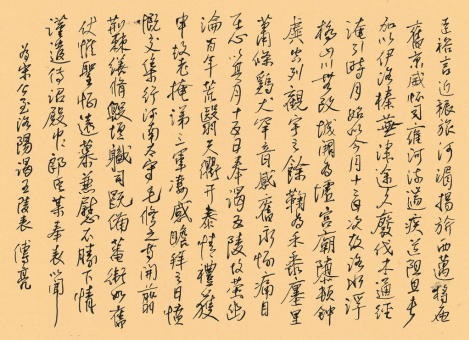 臣裕言近振旅河湄揚旍西邁將屆
舊京威懷司雍河流遄疾道阻且長
加以伊洛榛蕪津途久廢伐木通徑
淹引時月始以今月十二日次故洛水浮
橋山川無改城闕為墟宮廟隳頓鍾
虡空列觀宇之餘鞠為禾黍廛里
蕭條雞犬罕音感舊永懷痛目
在心以其月十五日奉謁五陵墳塋幽
淪百年荒翳天衢開泰情禮獲
申故老掩涕三軍悽感瞻拜之日憤
慨交集行河南太守毛修之等開翦
荊棘繕修毀垣職司既備蕃衛如舊
伏惟聖懷遠慕兼慰不勝下情
謹遣傳詔殿中郎臣某奉表以聞
為宋公至洛陽謁五陵表 傅亮